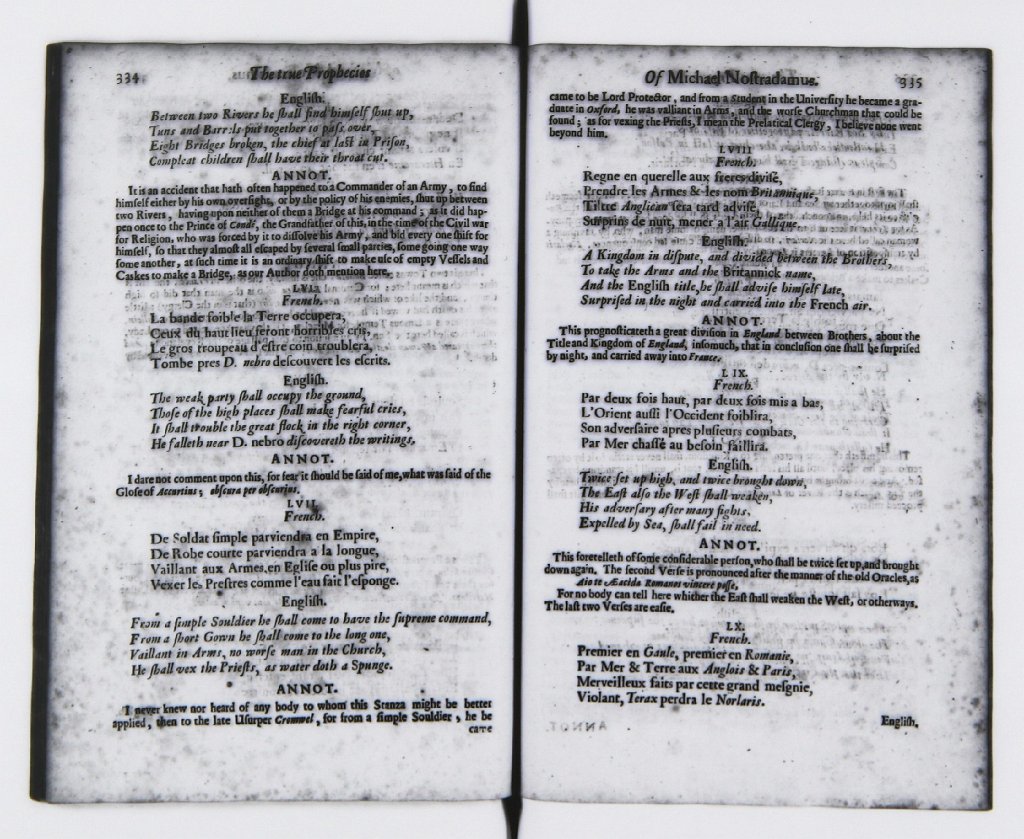 334
The true Prophecies
English.
Between two Rivers he ſhall find himſelf ſhut up,
Tuns and Barrels put together to paſs over,
Eight Bridges broken, the chief at laſt in Priſon,
Compleat children ſhall have their throat cut.
ANNOT.
It is an accident that hath often happened to a Commander of an Army, to find
himſelf either by his own overſight, or by the policy of his enemies, ſhut up between
two Rivers, having upon neither of them a Bridge at his command; as it did hap-
pen once to the Prince of Condé, the Grandfather of this, in the time of the Civil war
for Religion, who was forced by it to diſſolve his Army, and bid every one ſhift for
himſelf, ſo that they almoſt all eſcaped by ſeveral ſmall parties, ſome going one way
ſome another, at ſuch time it is an ordinary ſhift to make uſe of empty Veſſels and
Caskes to make a Bridge, as our Author doth mention here.
LVI.
French.
La bande foible la Terre occupera,
Ceux du haut lieu feront horribles cris,
Le gros troupeau d'eſtre coin troublera,
Tombe pres D. nebro deſcouvert les eſcrits.
English.
The weak party ſhall occupy the ground,
Thoſe of the high places ſhall make fearful cries,
It ſhall trouble the great flock in the right corner,
He falleth near D. nebro diſcovereth the writings.
ANNOT.
I dare not comment upon this, for fear it ſhould be ſaid of me, what was ſaid of the
Gloſe of Accurſius; obſcura per obſcurius.
LVII.
French.
De Soldat ſimple parviendra en Empire,
De Robe courte parviendra a la longue,
Vaillant aux Armes, en Egliſe ou plus pire,
Vexer les Preſtres comme l'eau fait l'eſponge.
Engliſh.
From a ſimple Souldier he ſhall come to have the ſupreme command,
From a ſhort Gown he ſhall come to the long one,
Vaillant in Arms, no worſe man in the Church,
He ſhall vex the Prieſts, as water doth a Spunge.
ANNOT.
I never knew nor heard of any body to whom this Stanza might be better
applied, then to the late Uſurper Cromwel, for from a ſimple Souldier, he be
came
Of Michael Noſtradamus.
335
came to be Lord Protector, and from a Student in the Univerſity he became a gra-
duate in Oxford, he was valliant in Arms, and the worſe Churchman that could be
found; as for vexing the Prieſts, I mean the Prelatical Clergy, I believe none went
beyond him.
LVIII
French.
Regne en querelle aux freres diviſé,
Prendre les Armes & les nom Britannique,
Tiltre Anglican ſera tard adviſé,
Surprins de nuit, mener a l'air Gallique.
Engliſh.
A Kingdom in diſpute, and divided between the Brothers,
To take the Arms and the Britannick name,
And the Engliſh title, he ſhall adviſe himſelf late,
Surpriſed in the night and carried into the French air.
ANNOT.
This prognoſticateth a great diviſion in England between Brothers, about the
Title and Kingdom of England, inſomuch, that in concluſion one ſhall be ſurpriſed
by night, and carried away into France.
LIX.
French.
Par deux fois haut, par deux fois mis a bas,
L'Orient auſſi l'Occident foiblira,
Son adverſaire apres pluſieurs combats,
Par Mer chaſſé au beſoin faillira.
Engliſh.
Twice ſet up high, and twice brought down,
The Eaſt alſo the Weſt ſhall weaken,
His adverſary after many fights,
Expelled by Sea, ſhall fail in need.
ANNOT.
This foretelleth of ſome conſiderable perſon, who ſhall be twice ſet up, and brought
down again. The ſecond Verſe is pronounced after the manner of the old Oracles, as
Aio te Æacida Romanos vincere poſſe,
For no body can tell here whither the Eaſt ſhall weaken the Weſt, or otherways.
The laſt two Verſes are eaſie.
LX.
French.
Premier en Gaule, premier en Romanie,
Par Mer & Terre aux Anglois & Paris,
Merveilleux faits par cette grand meſgnie,
Violant, Terax perdra le Norlaris.
Engliſh,